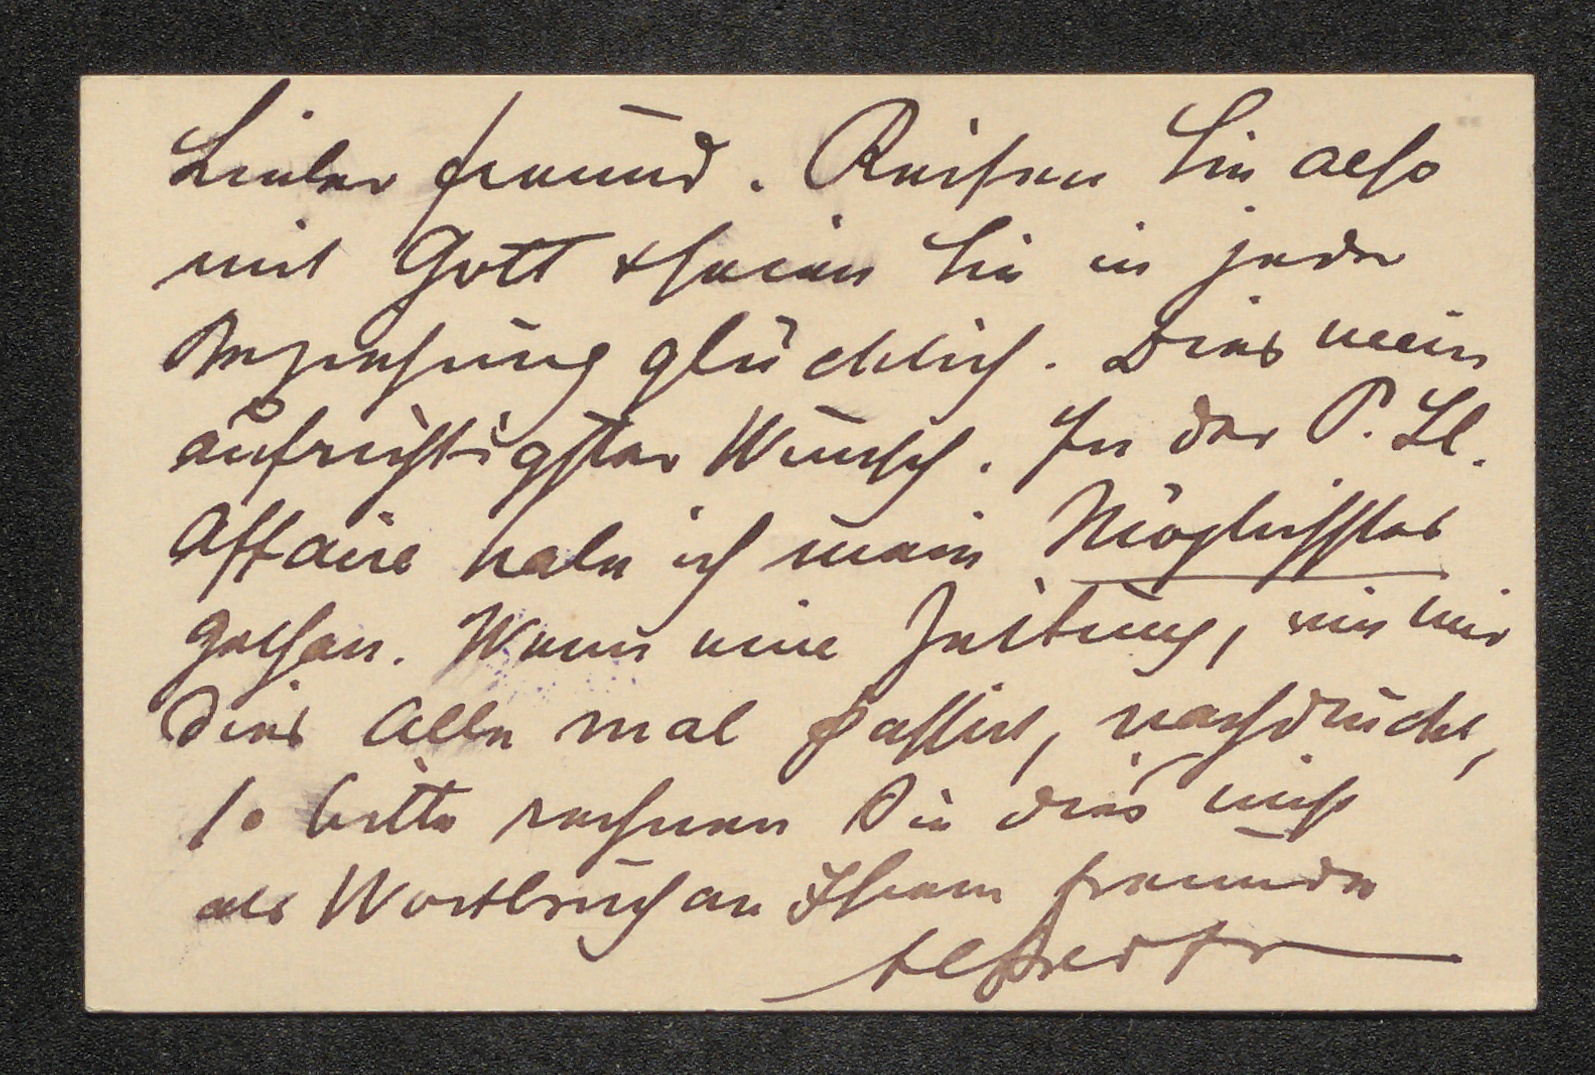 Lieber Freund. Reisen Sie also
mit Gott & seien Sie in jeder
Beziehung glücklich. Dies mein
aufrichtigster Wunsch. In der P. Sl.
Affaire habe ich mein Möglichstes
gethan. Wenn eine Zeitung, wie mir
dies alle mal passirt, nachdruckt,
so bitte rechnen Sie dies nicht
als Wortbruch an Ihrem Freunde
Alfred Fr